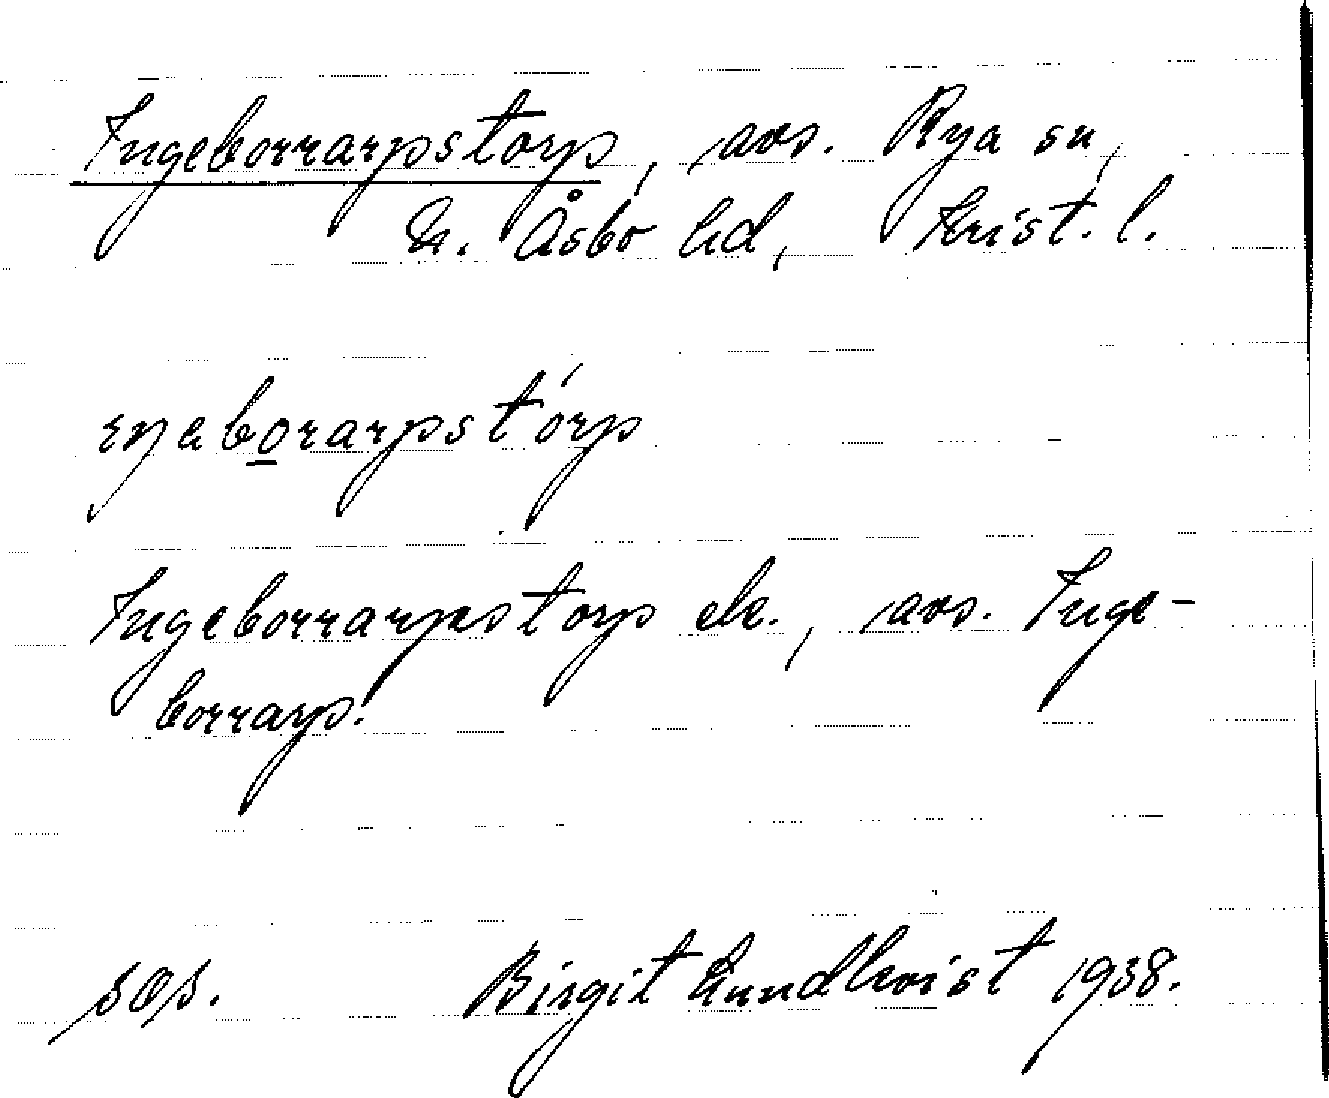 Ingeborrarpstorp, avs. Rya sn,
N. Åsbo hd, Krist. l.
eŋaborarpstórp
Ingeborrarpstorp ek., avs. Inge-
borrarp.
sOs. Birgit Lundkvist 1938.